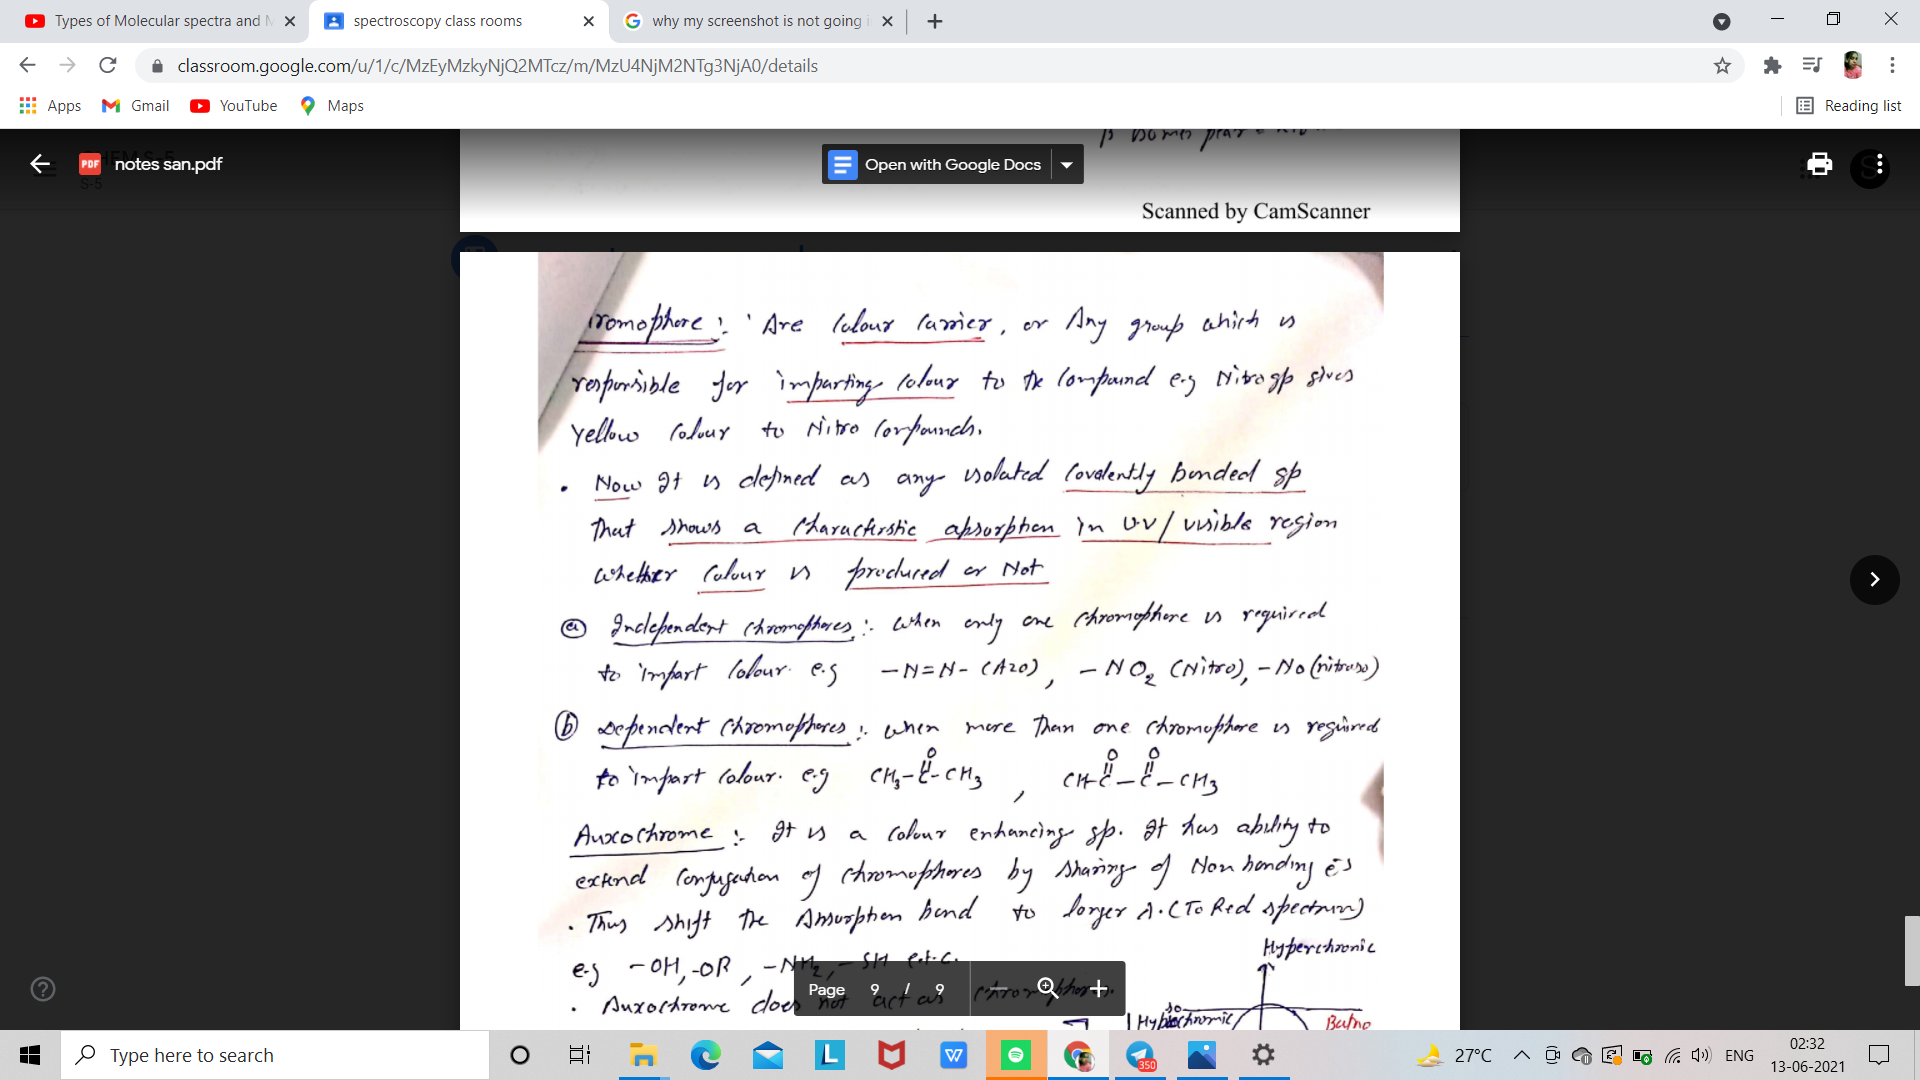 Types of Molecular spectra and M
spectroscopy class rooms
why my screenshot is not going i
classroom.google.com/u/1/c/MzEyMzkyNjQ2MTcz/m/MzU4NjM2NTg3NjA0/details
Apps
Gmail
YouTube
Maps
Reading list
PDF
notes san.pdf
S-5
Open with Google Docs
Scanned by CamScanner
romophore :- ' Are Colour Carrier, or Any group which is
responsible for imparting colour to the Compound e.g Nitro gp gives
Yellow Colour to Nitro Compounds.
• Now It is defined as any isolated Covalently bonded gp
That shows a Characterstic absorption in U.V/visible region
whether Colour is produced or Not
(a) Independent Chromophores :- when only one Chromophore is required
to impart Colour. e.g —N=N- (Azo), — NO2 (Nitro), -No (nitroso)
(b) Dependent Chromophores :- when more Than one Chromophore is required
O O O
to impart Colour. e.g CH3-C-CH3 , CH-C-C-CH3
Auxochrome :- It is a Colour enhancing gp. It has ability to
extend Conjugation of Chromophores by sharing of Non bonding e's
• Thus shift the Absorption band to larger λ. (To Red spectrum)
Hyperchromic
e.g -OH, -OR, -NH2, -SH e.t.c.
• Auxochrome does not act as Chromophore.
Page 9 / 9
Hypsochromic
Batho
Type here to search
350
27°C
ENG
02:32
13-06-2021